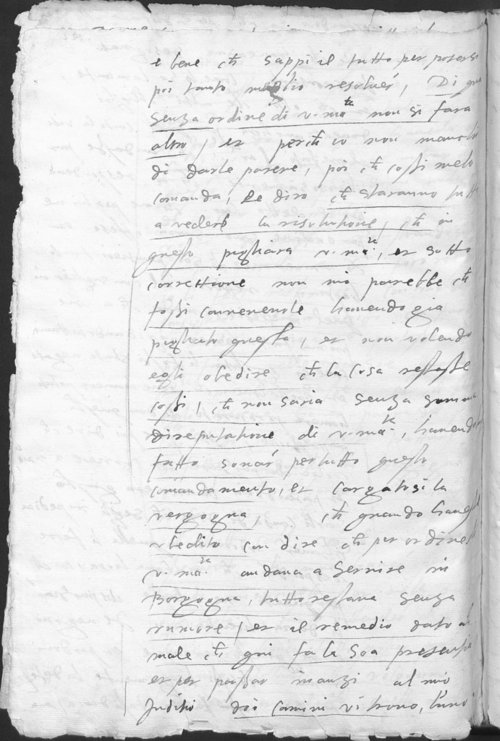 e bene ch sappi il tutto per potersi
poi tanto meglio resolver, Di qua
senza ordine di v. ma.te non si fara
altro, et perch io non mancho
di darle parere, poi ch cossi me lo
comanda, le diro ch staranno tutti
a veder la risolutione, ch in
questo pigliara v. ma.te, et sotto
correttione non mi parebbe ch
fossi conveneuole havendo gia
pigliato questa, et non volendo
egli obedire ch la cosa restasse
cossi, ch non saria senza somma
disreputatione di v. ma.te, havendo
fatto sonar per tutto questo
comandamento, et cargatosi la
vergogna, ch quando havessi
ubedito con dire ch per ordine di
v. ma.te andava a servire in
Borgogna, tutto restava senza
rumore, et il remedio dato al
male ch qui fa la soa presentia
et per passar inanzi al mio
juditio doi camini vi trovo, l'uno